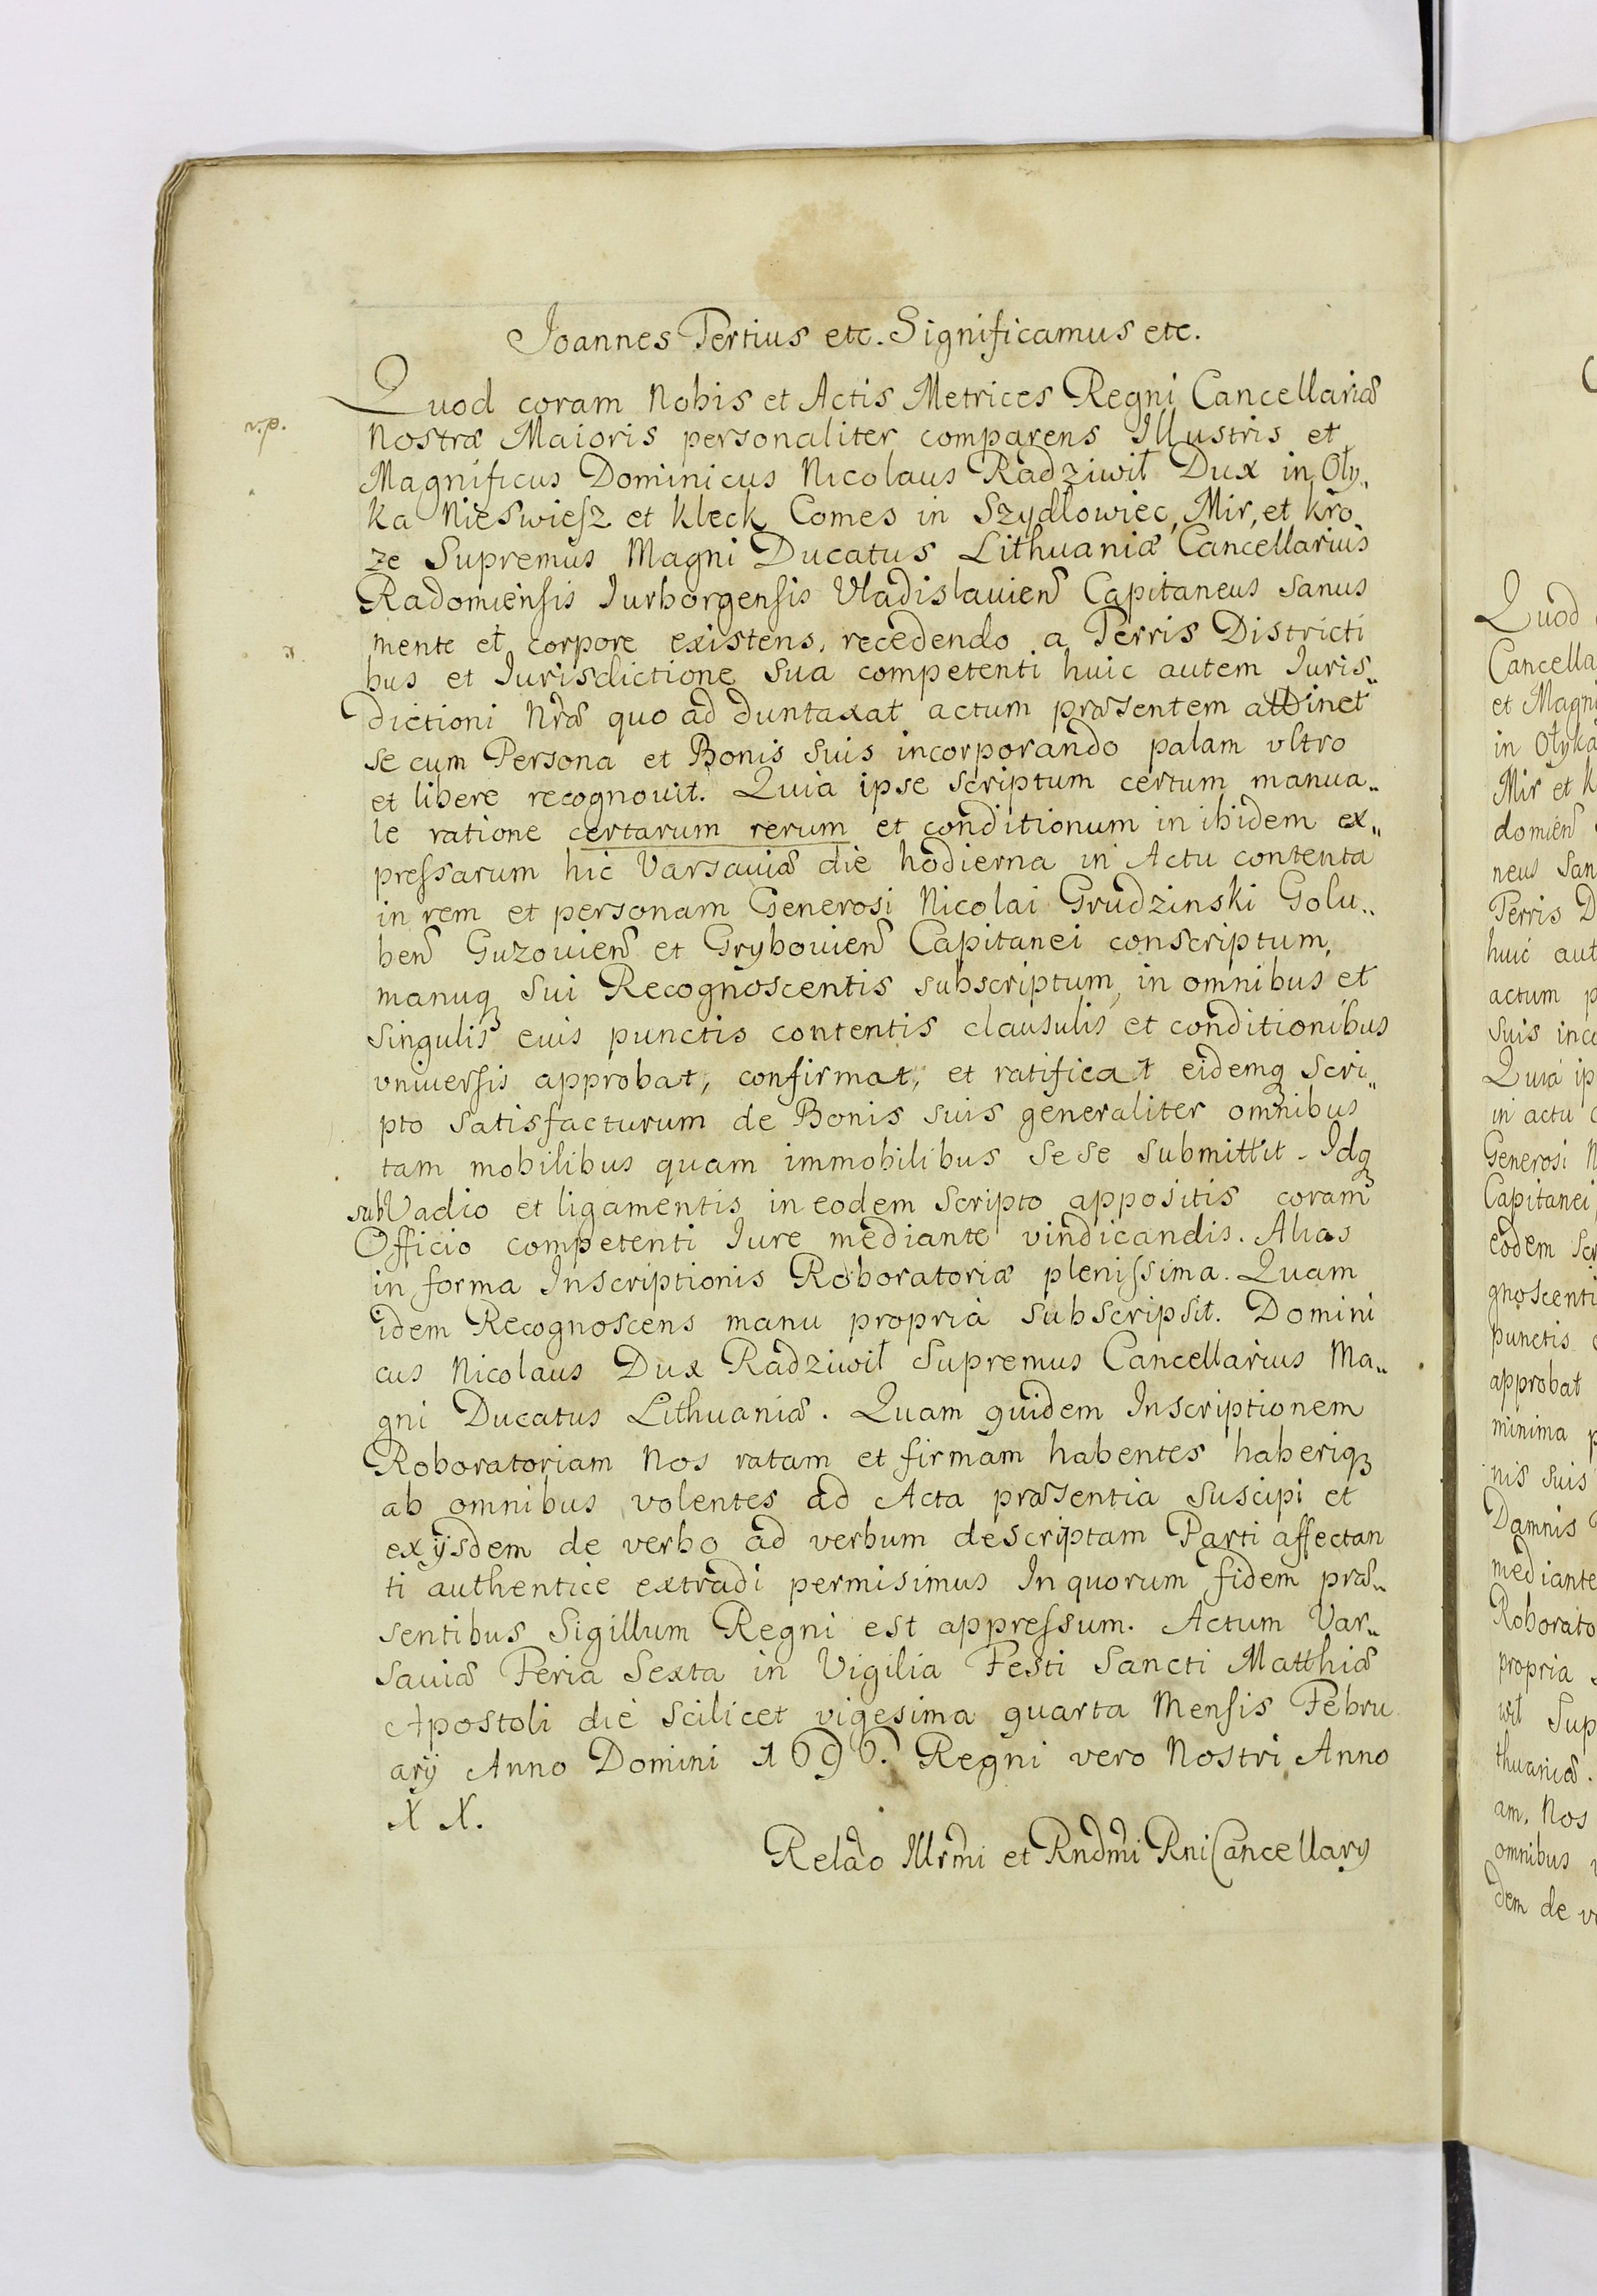 Joannes Tertius etc. Significamus etc.
Quod coram Nobis et Actis Metrices Regni Cancellariæ
Nostræ Maioris personaliter comparens Illustris et
Magnificus Dominicus Nicolaus Radziwił Dux in Oły„
ka Nieswiesz et Kleck Comes in Szydłowiec, Mir, et Kro
ze Supremus Magni Ducatus Lithuaniæ Cancellarius
Radomiensis Iurborgensis Vladislauien Capitaneus sanus
mente et corpore existens, recedendo a Terris Districti
bus et Iurisdictione sua competenti huic autem Iuris„
dictioni Nræ quo ad duntaxat actum præsentem attinet
se cum Persona et Bonis suis incorporando palam vltro
et libere recognouit. Quia ipse scriptum certum manua„
le ratione certarum rerum et conditionum in ibidem ex„
pressarum hic Varsauiæ die hodierna in Actu contenta
in rem et personam Generosi Nicolai Grudzinski Golu„
ben Guzouien et Grybouien Capitanei conscriptum,
manuq sui Recognoscentis subscriptum, in omnibus et
singulis euis punctis contentis clausulis et conditionibus
vniuersis approbat, confirmat, et ratificat eidemq scri„
pto satisfacturum de Bonis suis generaliter omnibus
tam mobilibus quam immobilibus sese submittit. Idq
sub Vadio et ligamentis in eodem scripto appositis coram
Officio competenti Iure mediante vindicandis. Alias
in forma Inscriptionis Roboratoriæ plenissima. Quam
idem Recognoscens manu propria subscripsit. Domini
cus Nicolaus Dux Radziwił Supremus Cancellarius Ma„
gni Ducatus Lithuaniæ. Quam quidem Inscriptionem
Roboratoriam Nos ratam et firmam habentes haberiq
ab omnibus volentes ad Acta præsentia suscipi et
ex ijsdem de verbo ad verbum descriptam Parti affectan
ti authentice extradi permisimus In quorum fidem præ„
sentibus Sigillum Regni est appressum. Actum Var„
sauiæ Feria Sexta in Vigilia Festi Sancti Matthiæ
Apostoli die scilicet vigesima quarta Mensis Febru
arij Anno Domini 1696. Regni vero Nostri Anno
XX.
Relao Illrmi et Rndmi Rni Cancellarij
Quod
Cancella
et Magni
in Ołyka
Mir et K
domien
neus San
Terris D
huic aut
actum p
suis inco
Quia ip
in actu c
Generosi N
Capitanei
eodem scr
gnoscenti
punctis
approbat
minima p
nis suis
Damnis
mediante
Roborato
propria
wił Sup
thuaniæ.
am. Nos
omnibus
dem de v